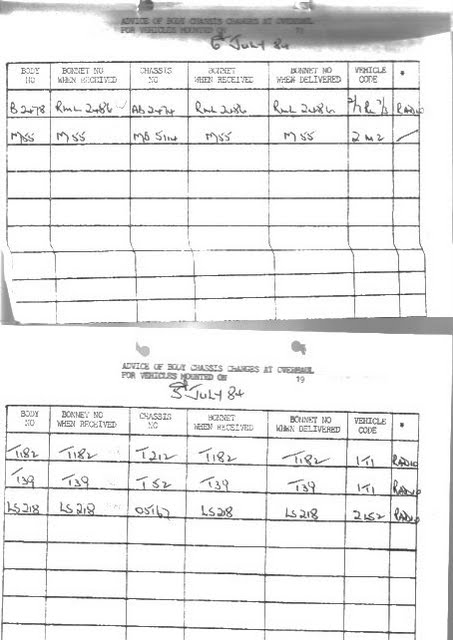 ADVICE OF BODY CHASSIS CHANGES AT OVERHAUL
FOR VEHICLES MOUNTED ON 19
6th JULY 84
BODY NO BONNET NO WHEN RECEIVED CHASSIS NO BONNET WHEN RECEIVED BONNET NO WHEN DELIVERED VEHICLE CODE *
B2478 RML 2486 AB2474 RML 2486 RML 2486 RADIO
M55 M55 MB 5114 M55 M55 2M2
ADVICE OF BODY CHASSIS CHANGES AT OVERHAUL
FOR VEHICLES MOUNTED ON 19
5th JULY 84
BODY NO BONNET NO WHEN RECEIVED CHASSIS NO BONNET WHEN RECEIVED BONNET NO WHEN DELIVERED VEHICLE CODE *
T1182 T1182 T1212 T1182 T1182 1T1 RADIO
T39 T39 T52 T39 T39 1T1 RADIO
LS218 LS218 05167 LS218 LS218 2LS2 RADIO